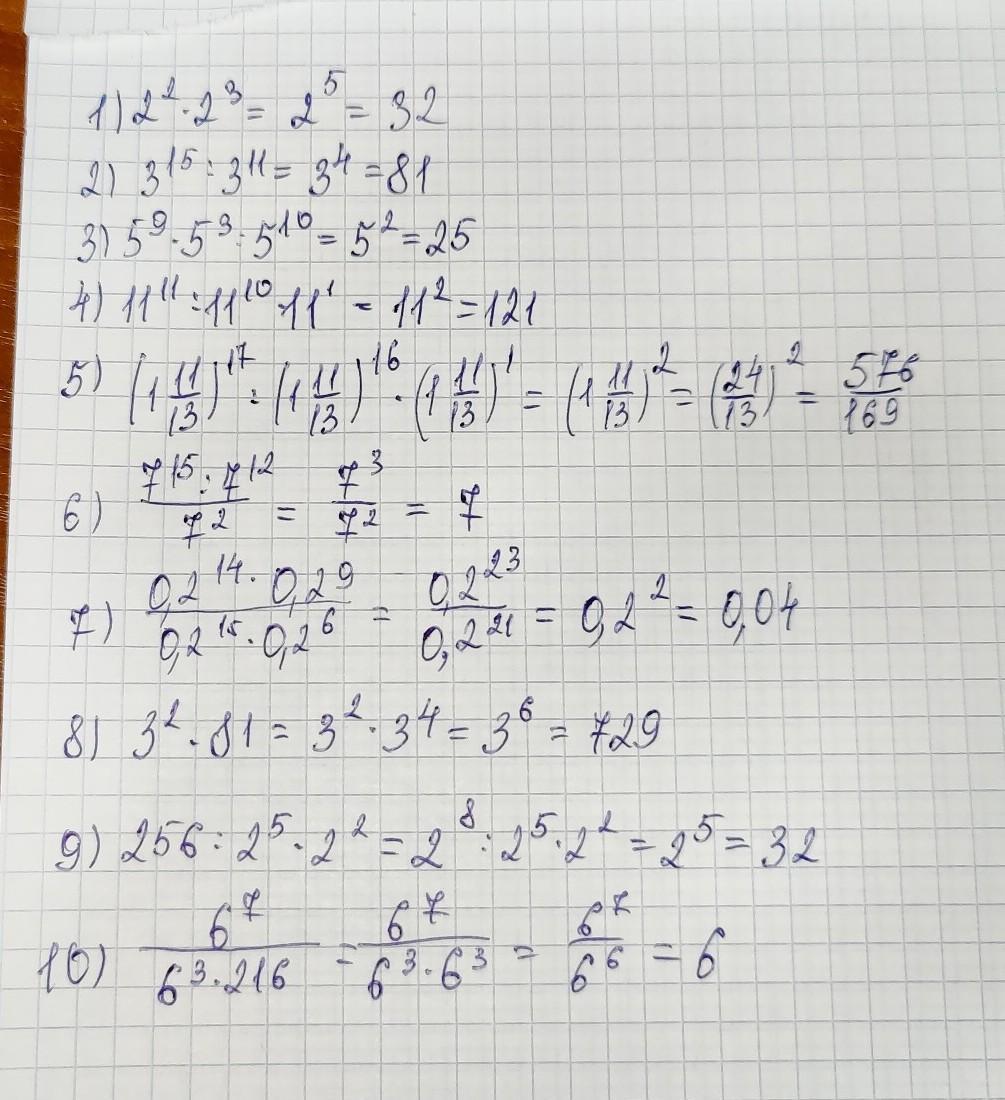 1) 2² · 2³ = 2⁵ = 32
2) 3¹⁵ : 3¹¹ = 3⁴ = 81
3) 5⁹ · 5³ : 5¹⁰ = 5² = 25
4) 11¹¹ : 11¹⁰ · 11¹ = 11² = 121
5) (1 11/13)¹⁷ : (1 11/13)¹⁶ · (1 11/13)¹ = (1 11/13)² = (24/13)² = 576/169
6) (7¹⁵ : 7¹²)/7² = 7³/7² = 7
7) (0,2¹⁴ · 0,2⁹)/(0,2¹⁵ · 0,2⁶) = 0,2²³/0,2²¹ = 0,2² = 0,04
8) 3² · 81 = 3² · 3⁴ = 3⁶ = 729
9) 256 : 2⁵ · 2² = 2⁸ : 2⁵ · 2² = 2⁵ = 32
10) 6⁷/(6³ · 216) = 6⁷/(6³ · 6³) = 6⁷/6⁶ = 6